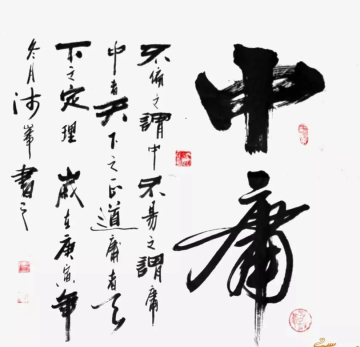 中庸
不偏之謂中不易之謂庸
中者天下之正道庸者天
下之定理 歲在庚寅年
冬月沛峯書之